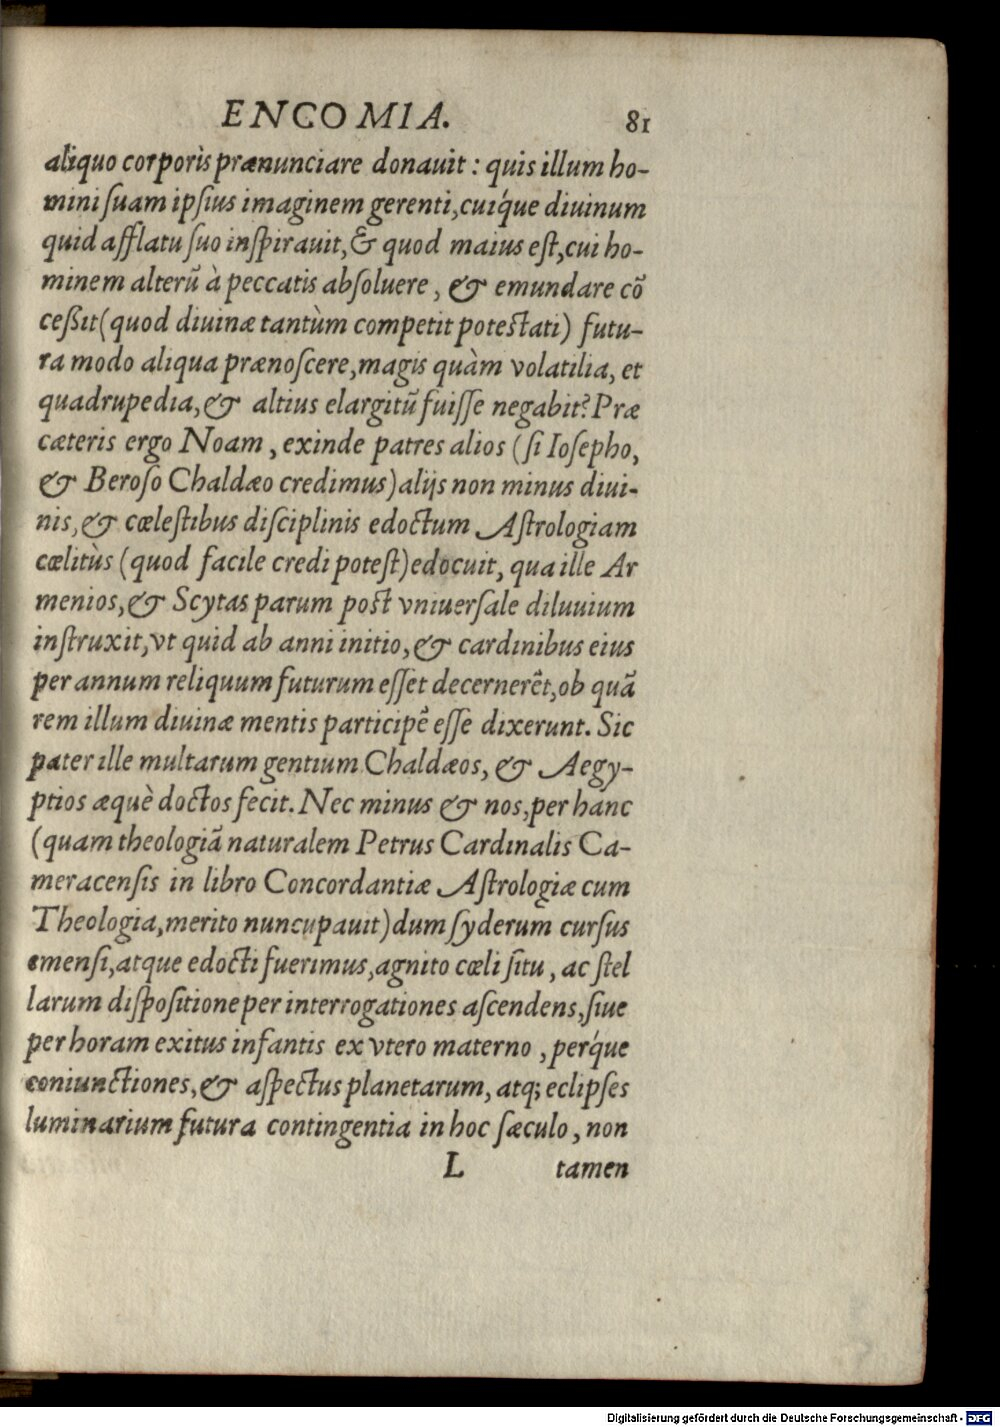 ENCOMIA. 81
aliquo corporìs prænunciare donauit : quis illum ho-
mini suam ipsius imaginem gerenti, cuíque diuinum
quid afflatu suo inspirauit, & quod maius est, cui ho-
minem alterũ à peccatis absoluere, & emundare cõ
ceßit (quod diuinæ tantùm competit potestati) futu-
ra modo aliqua prænoscere, magis quàm volatilia, et
quadrupedia, & altius elargitũ fuisse negabit? Præ
cæteris ergo Noam, exinde patres alios (si Iosepho,
& Beroso Chaldæo credimus) alijs non minus diui-
nis, & cœlestibus disciplinis edoctum Astrologiam
cœlitùs (quod facile credi potest) edocuit, qua ille Ar
menios, & Scytas parum post vniuersale diluuium
instruxit, vt quid ab anni initio, & cardinibus eius
per annum reliquum futurum esset decernerẽt, ob quã
rem illum diuinæ mentis participẽ esse dixerunt. Sic
pater ille multarum gentium Chaldæos, & Aegy-
ptios æquè doctos fecit. Nec minus & nos, per hanc
(quam theologiã naturalem Petrus Cardinalis Ca-
meracensis in libro Concordantiæ Astrologiæ cum
Theologia, merito nuncupauit) dum syderum cursus
emensi, atque edocti fuerimus, agnito cœli situ, ac stel
larum dispositione per interrogationes ascendens, siue
per horam exitus infantis ex vtero materno, perque
coniunctiones, & aspectus planetarum, atq; eclipses
luminarium futura contingentia in hoc sæculo, non
L tamen
Digitalisierung gefördert durch die Deutsche Forschungsgemeinschaft - DFG